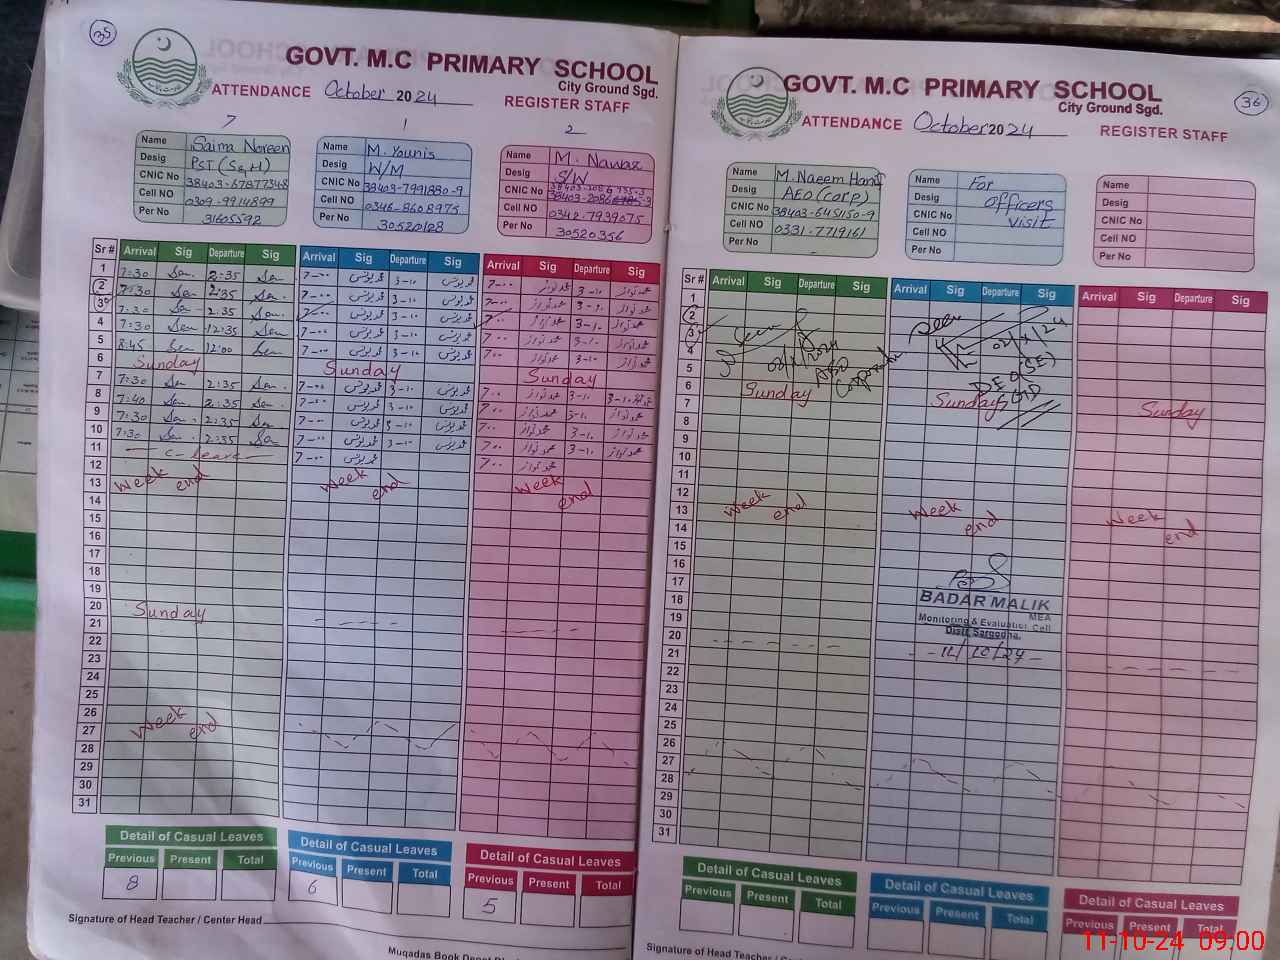 35
GOVT. M.C PRIMARY SCHOOL
City Ground Sgd.
ATTENDANCE October 2024
REGISTER STAFF
7
1
2
Name Saima Noreen
Desig PST (Sc, H)
CNIC No 38403-6787734-8
Cell NO 0309-9914899
Per No 31605592
Name M. Younis
Desig W/M
CNIC No 38403-7991880-9
Cell NO 0346-8608975
Per No 30520128
Name M. Nawaz
Desig S/W
CNIC No
Cell NO 0342-7939075
Per No 30520356
Sr # Arrival Sig Departure Sig Arrival Sig Departure Sig Arrival Sig Departure Sig
1 7:30 2:35 7-00 محمد یونس 3-10 محمد یونس 7-00 محمد نواز 3-10 محمد نواز
2 7:30 2:35 7-00 محمد یونس 3-10 محمد یونس 7-00 محمد نواز 3-10 محمد نواز
3 7:30 2:35 7-00 محمد یونس 3-10 محمد یونس 7-00 محمد نواز 3-10 محمد نواز
4 7:30 12:35 7-00 محمد یونس 3-10 محمد یونس 7-00 محمد نواز 3-10 محمد نواز
5 8:45 12:00 7-00 محمد یونس 3-10 محمد یونس 7-00 محمد نواز 3-10 محمد نواز
6 Sunday Sunday Sunday
7 7:30 2:35 7-00 محمد یونس 3-10 محمد یونس 7-00 محمد نواز 3-10 محمد نواز
8 7:40 2:35 7-00 محمد یونس 3-10 محمد یونس 7-00 محمد نواز 3-10 محمد نواز
9 7:30 2:35 7-00 محمد یونس 3-10 محمد یونس 7-00 محمد نواز 3-10 محمد نواز
10 7:30 2:35 7-00 محمد یونس 3-10 محمد یونس 7-00 محمد نواز 3-10 محمد نواز
11 C-leave 7-00 محمد یونس 7-00 محمد نواز
12 week end week end week end
13
14
15
16
17
18
19
20 Sunday
21
22
23
24
25
26 week end
27
28
29
30
31
Detail of Casual Leaves Detail of Casual Leaves Detail of Casual Leaves
Previous Present Total Previous Present Total Previous Present Total
8 6 5
Signature of Head Teacher / Center Head
36
GOVT. M.C PRIMARY SCHOOL
City Ground Sgd.
ATTENDANCE October 2024
REGISTER STAFF
Name M. Naeem Hanif
Desig AEO (Corp)
CNIC No 38403-645150-9
Cell NO 0331-7719161
Per No -
Name For
Desig officers
CNIC No visit
Cell NO
Per No
Name
Desig
CNIC No
Cell NO
Per No
Sr # Arrival Sig Departure Sig Arrival Sig Departure Sig Arrival Sig Departure Sig
1
2
3 Seen Seen 02/X/24
4 02/X/2024
5 AEO DEO(SE)
6 Sunday Sunday SGD
7 Sunday
8
9
10
11
12 week end week end week end
13
14
15
16
17
18 BADAR MALIK
MEA
19 Monitoring & Evaluation Cell
Distt. Sargodha.
20
21 11/10/24
22
23
24
25
26
27
28
29
30
31
Detail of Casual Leaves Detail of Casual Leaves Detail of Casual Leaves
Previous Present Total Previous Present Total Previous Present Total
Signature of Head Teacher /
Muqadas Book Depot
11-10-24 09:00